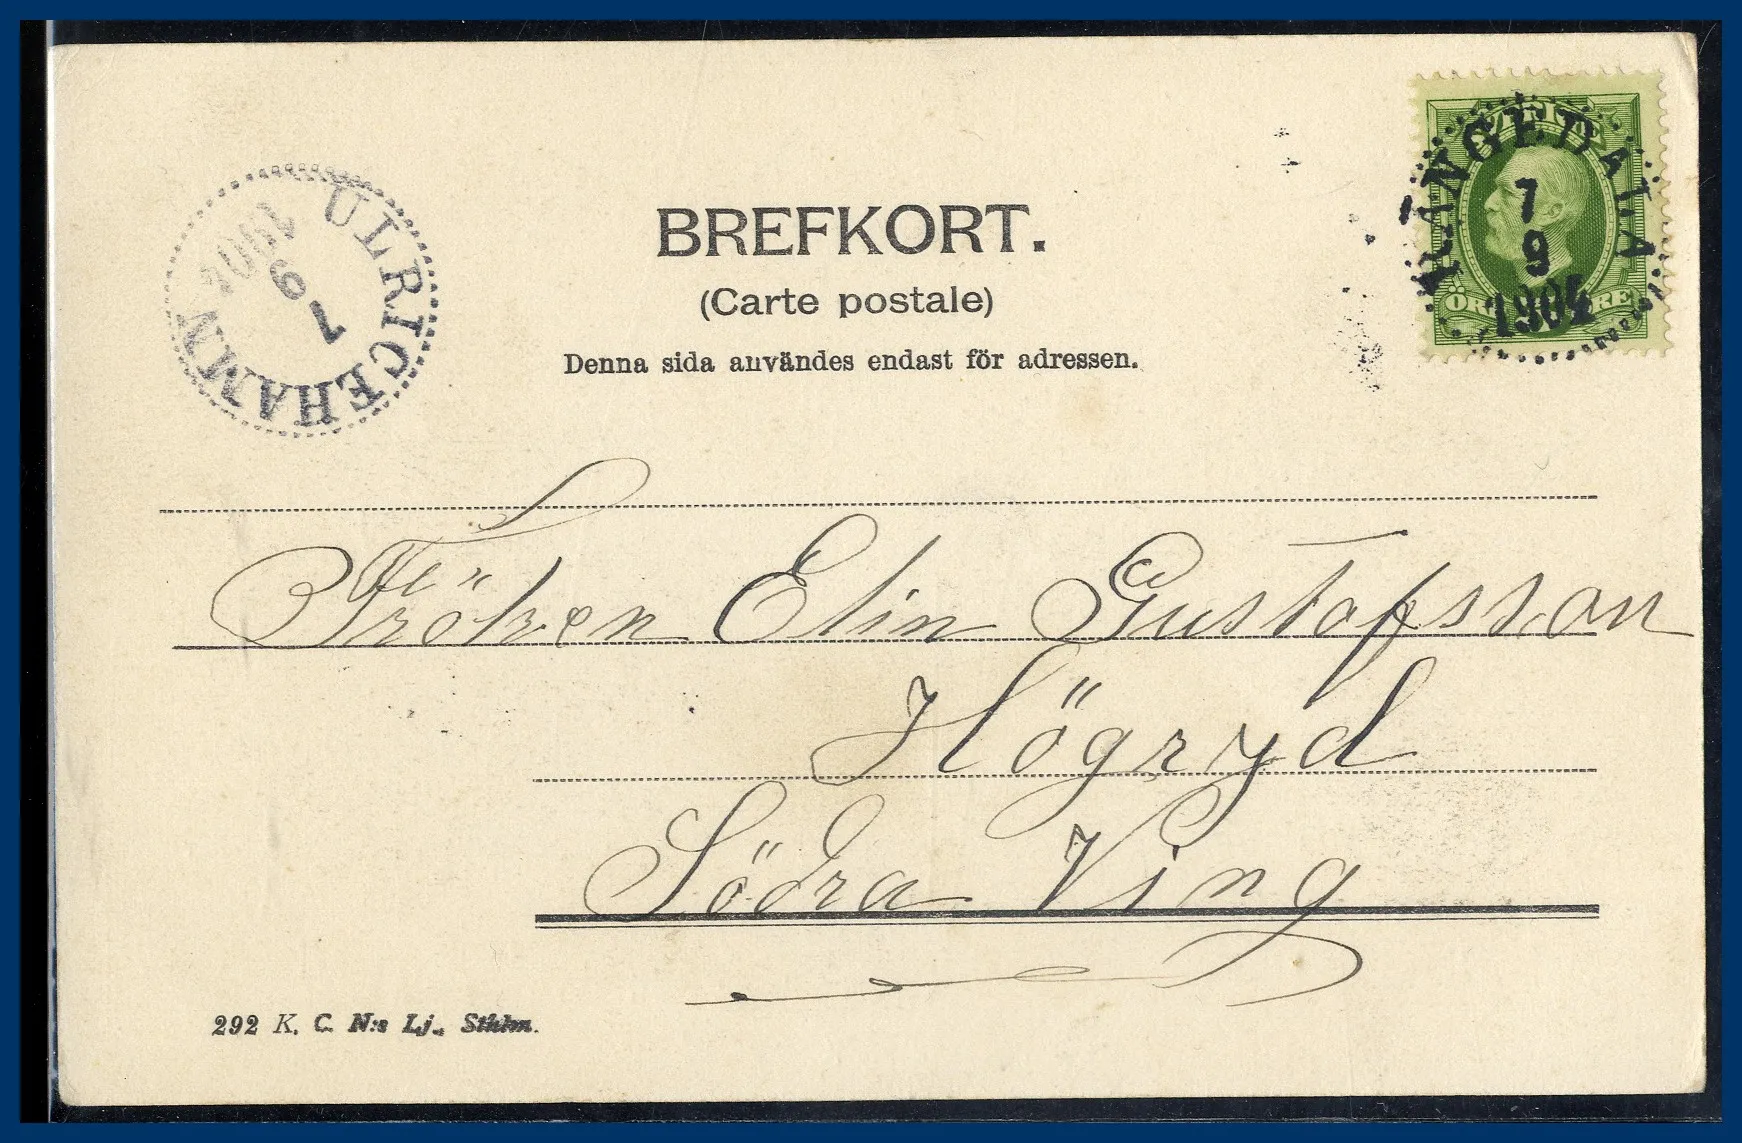 BREFKORT.
(Carte postale)
Denna sida användes endast för adressen.
ULRICEHAMN
7
9
1904
RÅNGEDALA
7
9
1904
SVERIGE
ÖRE ÖRE
Fröken Elin Gustafsson
Högryd
Södra Ving
292 K. C. N:s Lj., Sthlm.